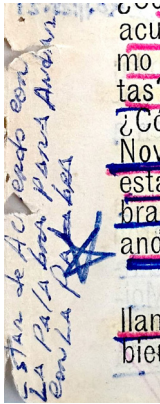 Estar de Acuerdo con
La Palabra para Andar
con La Palabra
acu
mo
tas?
¿Có
Nov
esta
bra
and
llan
bien